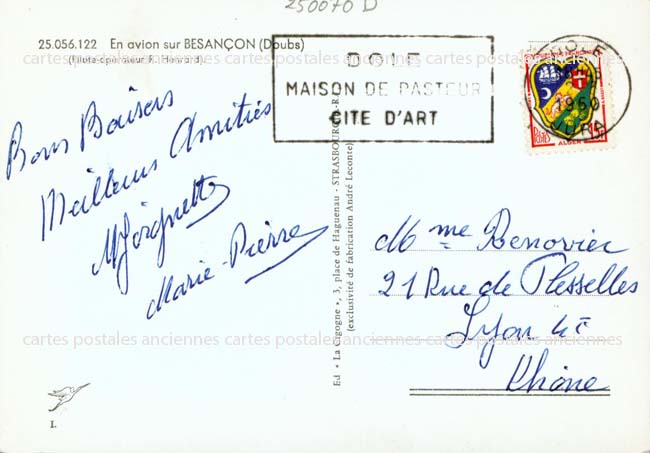 250070 D
25.056.122 En avion sur BESANÇON (Doubs)
(Pilote-opérateur R. Henrard)
DOLE
MAISON DE PASTEUR
CITE D'ART
DOLE
1960
JURA
POSTES
ALGER
cartes postales anciennes cartes postales anciennes cartes postales anciennes
Bons Baisers
Meilleurs Amitiés
Marie-Pierre
Ed « La Cigogne », 3, place de Haguenau - STRASBOURG
(exclusivité de fabrication André Leconte)
Mme Renovier
21 Rue de Plesselles
Lyon 4e
Rhône
cartes postales anciennes cartes postales anciennes cartes postales anciennes
I.